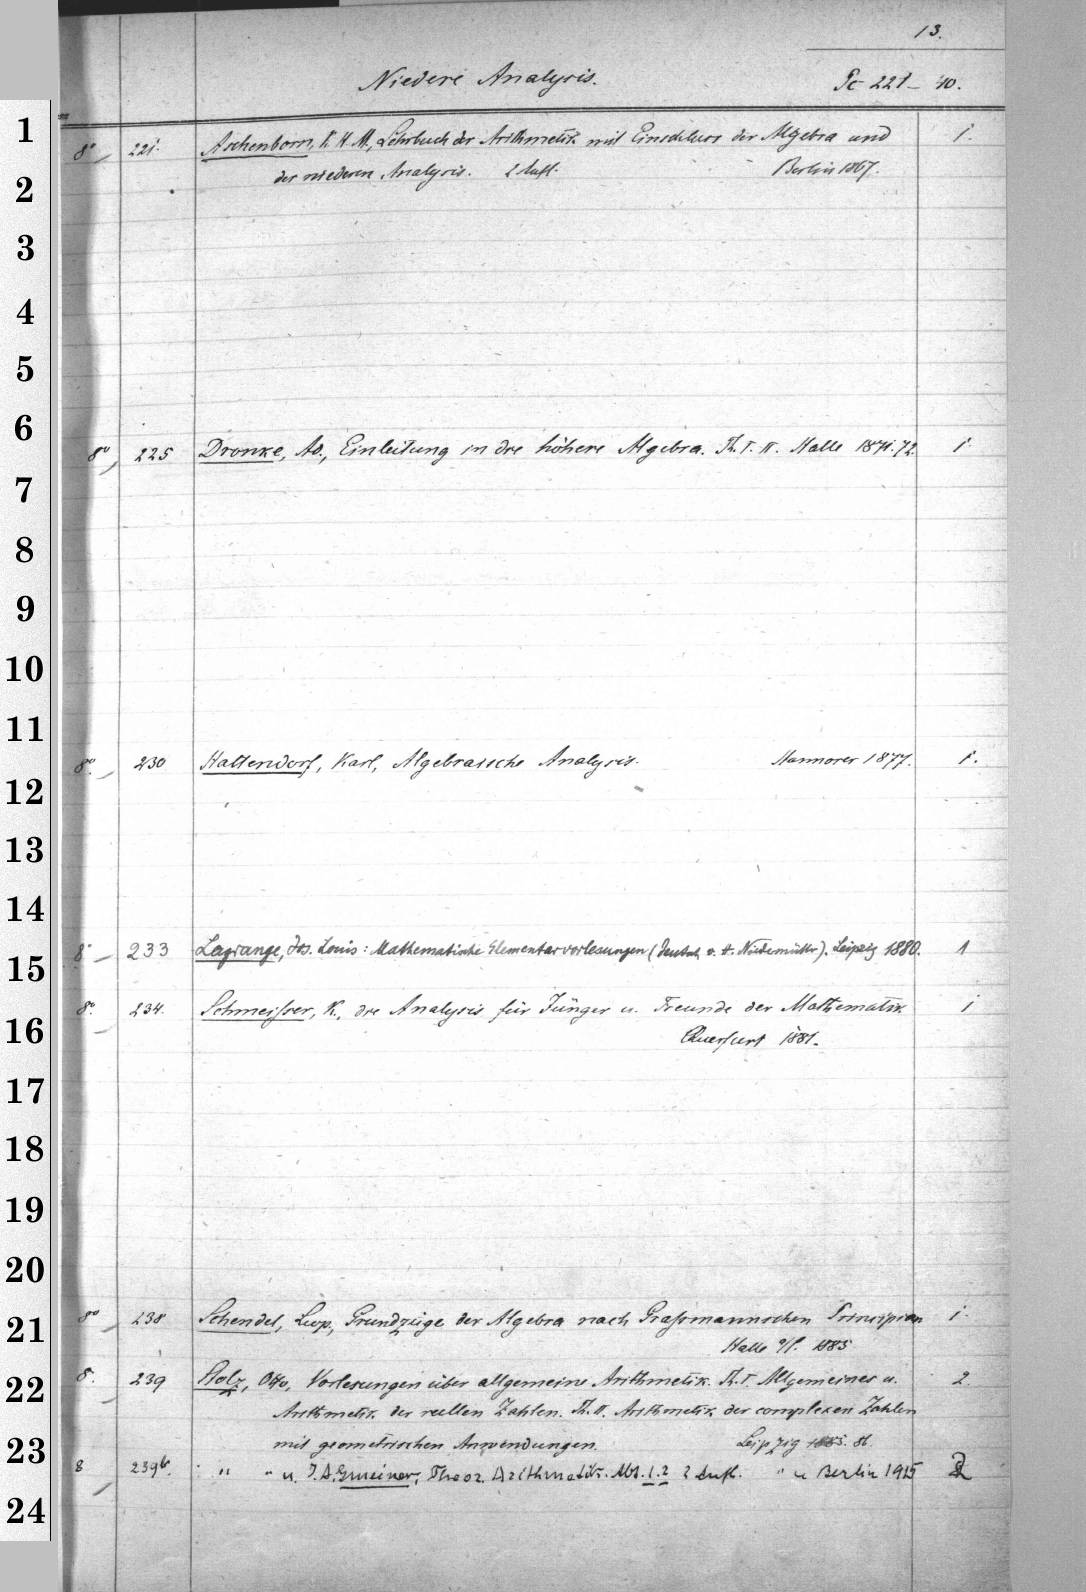 13.
Niedere Analysis. Pc 221-40.
1
8° 221. Aschenborn, K. H. M., Lehrbuch der Arithmetik mit Einschluss der Algebra und 1.
2
der niederen Analysis. 2 Aufl. Berlin 1867.
3
4
5
6
8° 225 Dronke, Ad., Einleitung in die höhere Algebra. Th. I. II. Halle 1871.72. 1
7
8
9
10
11
8° 230 Hattendorf, Karl, Algebraische Analysis. Hannover 1877. 1.
12
13
14
8° 233 Lagrange, Jos. Louis: Mathematische Elementarvorlesungen (Deutsch v. H. Niedermüller). Leipzig 1880. 1
15
8° 234. Schmeisser, K., die Analysis für Jünger u. Freunde der Mathematik 1
16
Querfurt 1881.
17
18
19
20
8° 238 Schendel, Leop., Grundzüge der Algebra nach Graßmannschen Principien 1
21
Halle a/S. 1885
22
8. 239 Stolz, Otto, Vorlesungen über allgemeine Arithmetik. Th. I. Allgemeines u. 2
Arithmetik der reellen Zahlen. Th. II. Arithmetik der complexen Zahlen
23
mit geometrischen Anwendungen. Leipzig 1885. 86.
8 239b. " " u. J. A. Gmeiner, Theor. Arithmetik. Abt. 1.2 2 Aufl. " u Berlin 1915 2
24